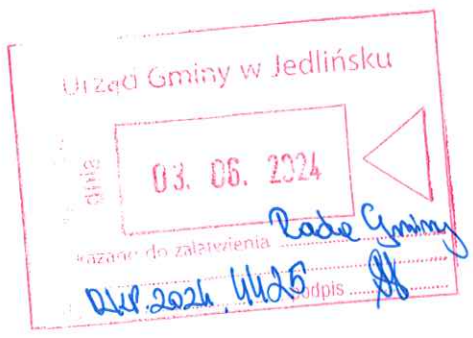 Urząd Gminy w Jedlińsku
dnia
03. 06. 2024
kazano do załatwienia Rada Gminy
2024. 4425 podpis